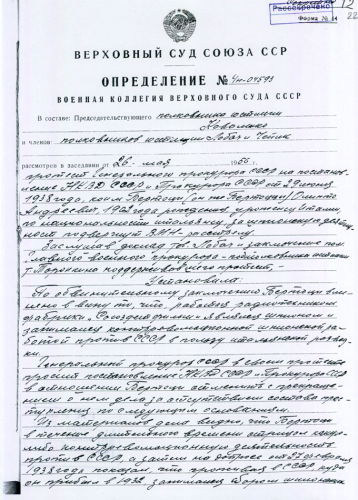 Рассекречено
Форма № 14
ВЕРХОВНЫЙ СУД СОЮЗА ССР
ОПРЕДЕЛЕНИЕ № 4н-04593
ВОЕННАЯ КОЛЛЕГИЯ ВЕРХОВНОГО СУДА СССР
В составе: Председательствующего полковника юстиции
и членов: полковников юстиции Лобач и
рассмотрев в заседании от 26 мая 1956 г.
протест Генерального прокурора СССР на постанов-
ление НКВД СССР и Прокурора СССР от 2 июня
1938 года, коим Бертоци /он же Бертоции/
года рождения, уроженец Италии,
по национальности итальянец, за шпионскую деятель-
ность подвергнут ВМН - расстрелу.
Заслушав доклад тов. Лобач и заключение по-
военного прокурора - подполковника юстиции
т. поддержавшего протест,
Установила:
По обвинительному заключению Бертоци вменя-
лось в вину то, что, работая радиотехником
фабрики "Союздетфильм" являлся шпионом и
занимался контрреволюционной шпионской ра-
ботой против СССР в пользу итальянской развед-
ки.
Генеральный прокурор СССР в своем протесте
просит постановление НКВД СССР и Прокурора СССР
в отношении Бертоци отменить с прекраще-
нием о нем дела за отсутствием состава прес-
тупления по следующим основаниям.
Из материалов дела видно, что Бертоци
в течение длительного времени отрицал какую-
либо контрреволюционную деятельность
против СССР, а затем на допросе от 27 февраля
1938 года показал, что приехав в СССР, куда
он прибыл в 193 занимался сбором шпионских